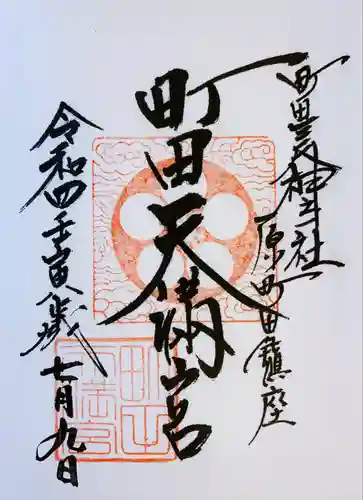 町田天満宮
原町田鎮座
令和四壬寅歳
七月九日